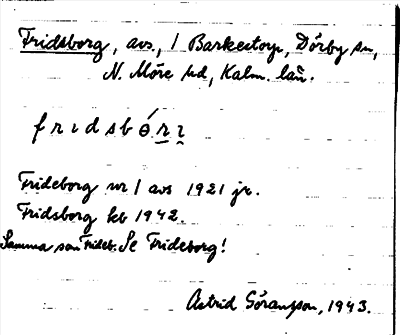 Fridsborg, avs., / Barkestorp, Dörby sn,
N. Möre hd, Kalm. län.
frıdsbɵ́rı
Frideborg nr 1 avs 1921 jr.
Fridsborg kb 1942.
Samma som Frideb. Se Frideborg!
Astrid Göransson, 1943.